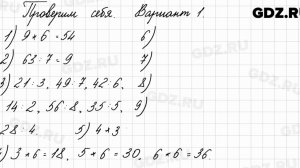 GDZ.RU
Проверим себя. Вариант 1.
1) 9×6=54 6)
2) 63:7=9 7)
3) 21:3, 49:7, 42:6, 8)
14:2, 56:8, 35:5, 9)
28:4. 5) 4×3
4) 3×6=18, 5×6=30, 6×6=36.
GDZ.RU